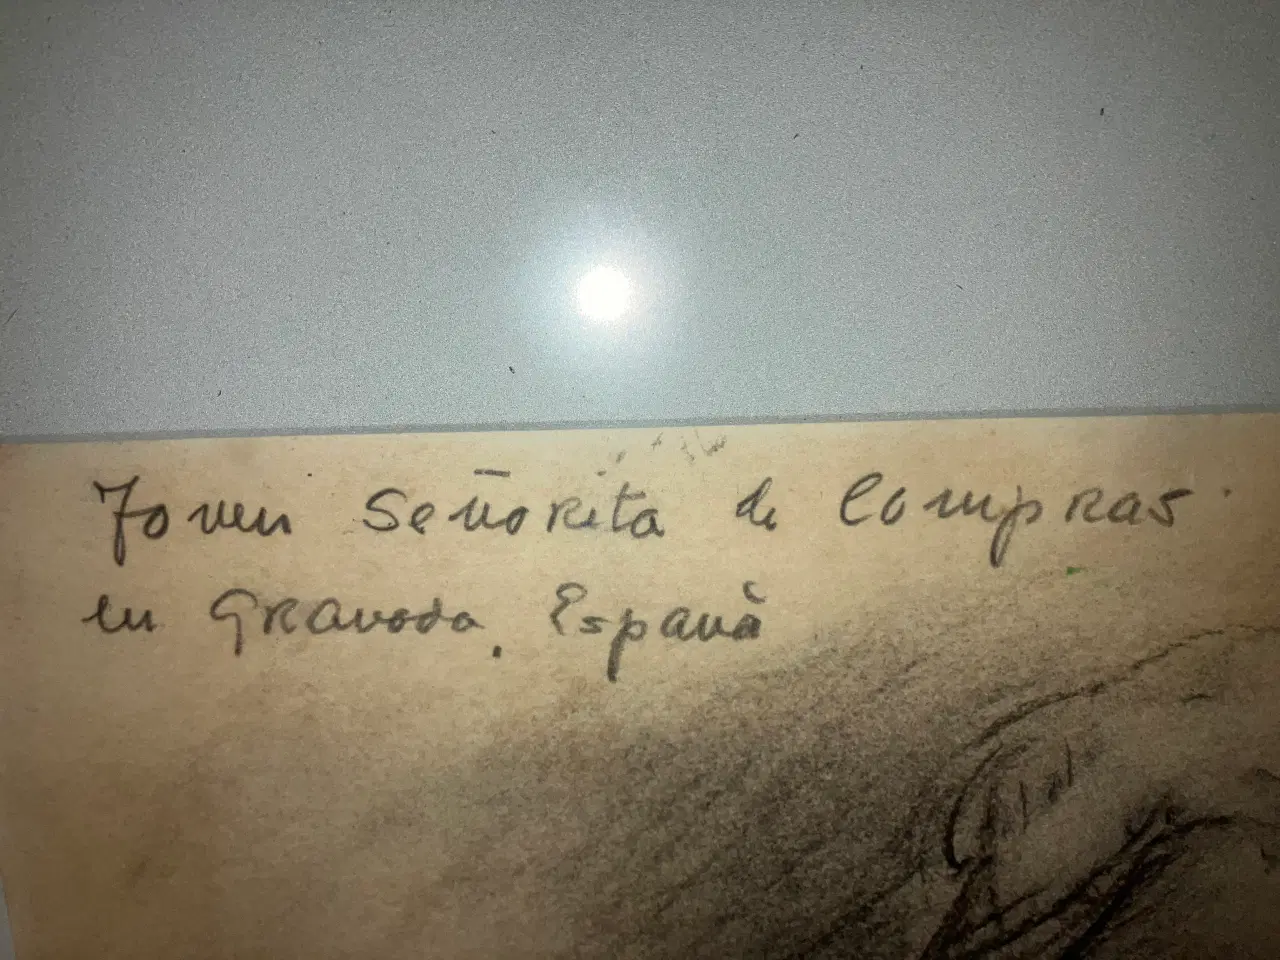 Joven Señorita de Compras.
en Granada. Españà